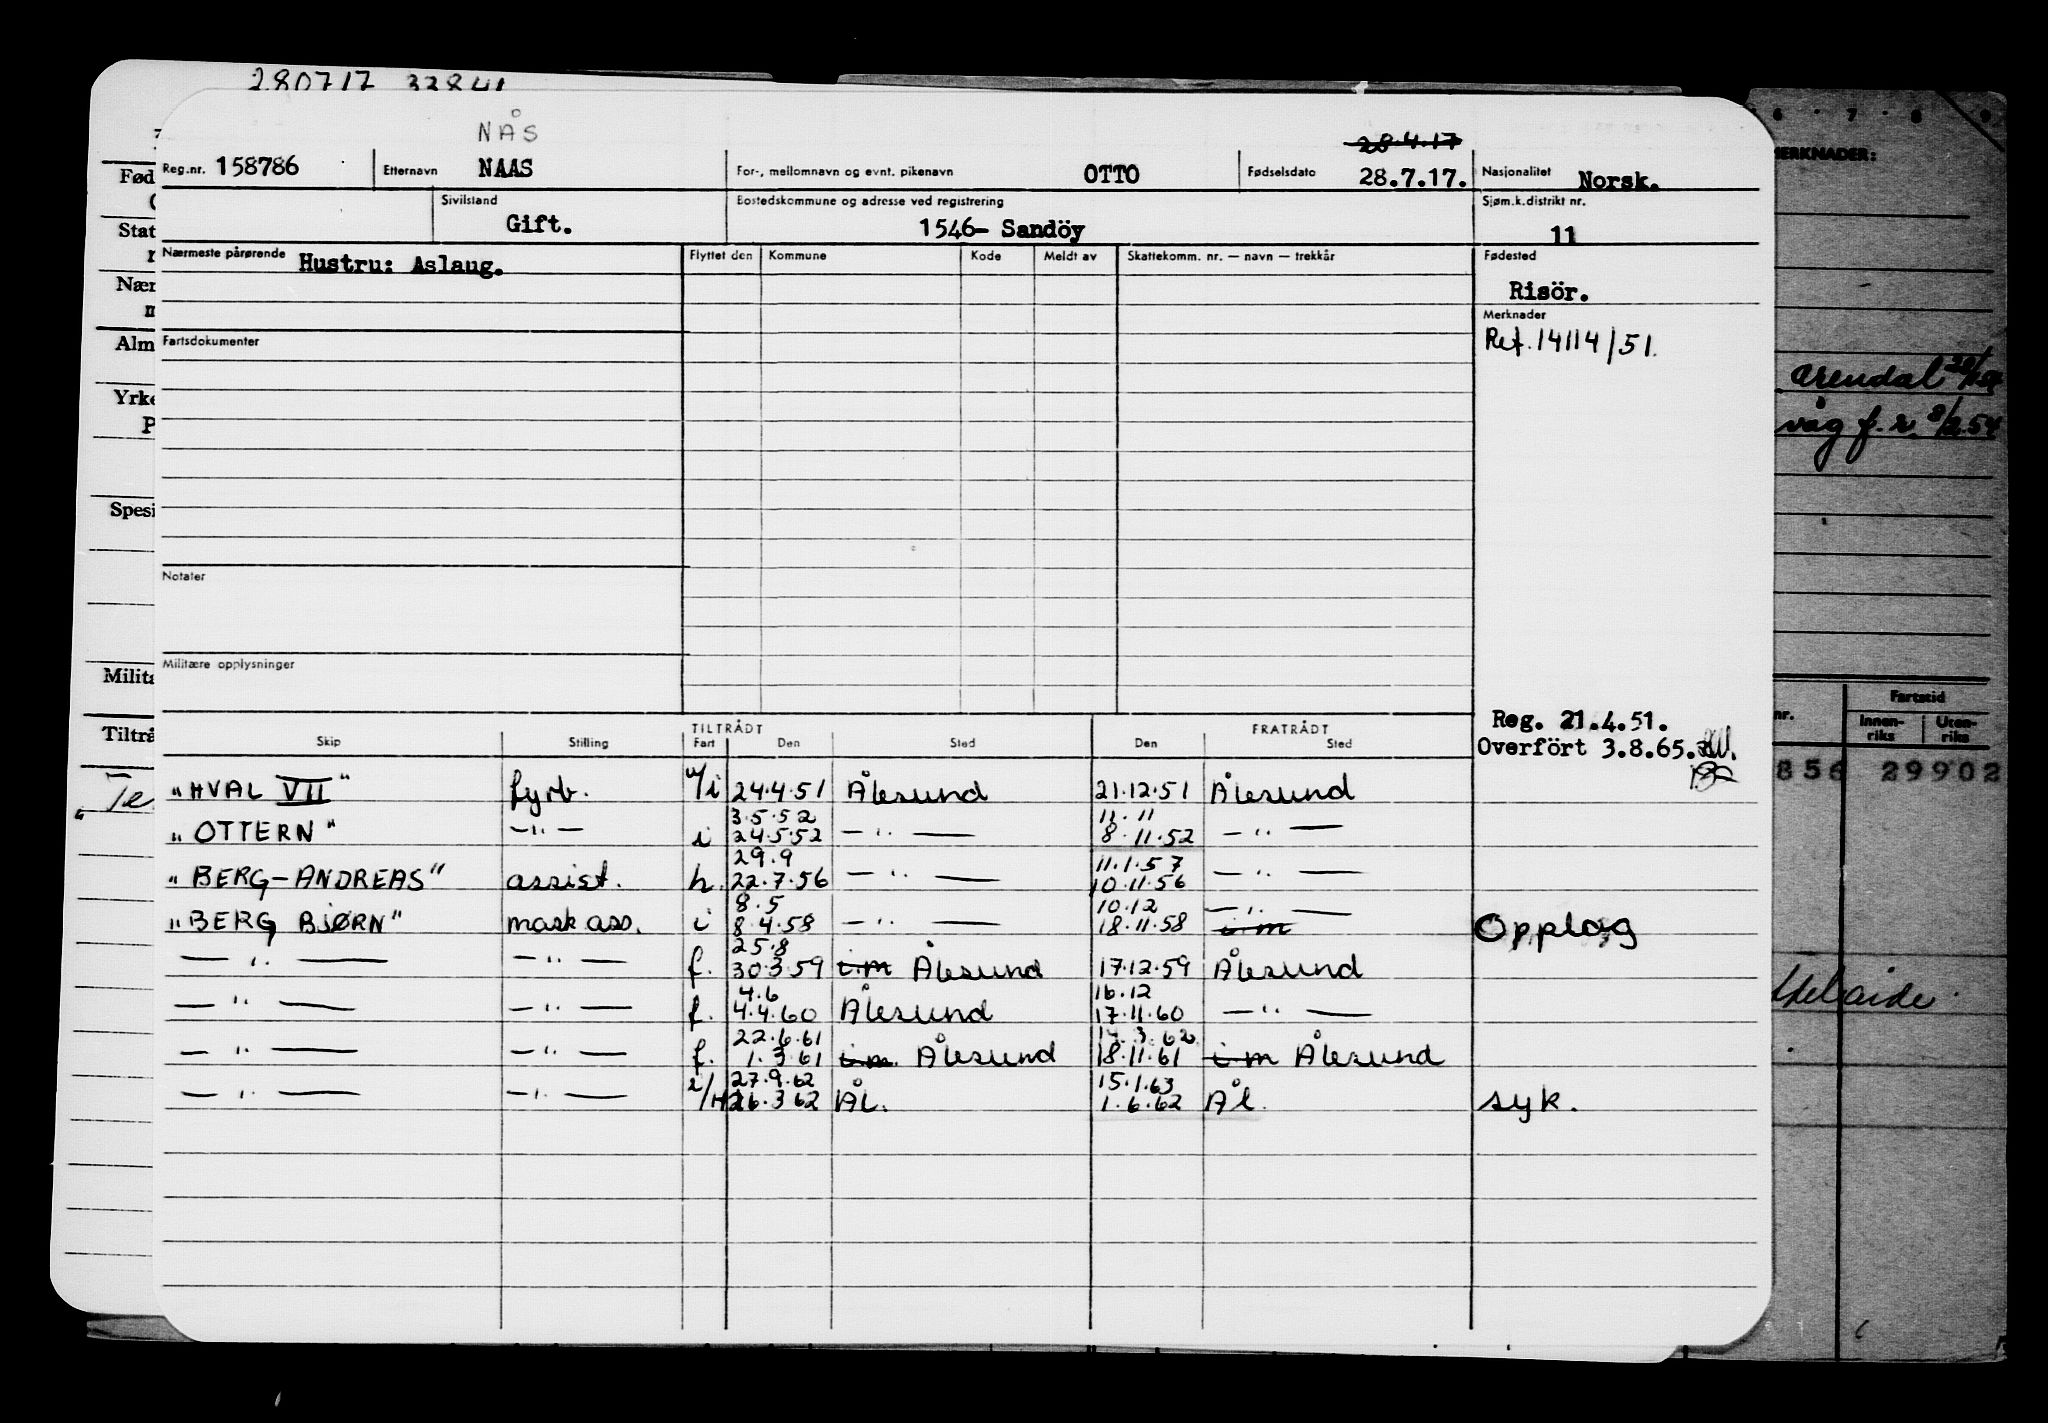 280717 32841
NÅS
28.4.17
Reg.nr. 158786 Etternavn NAAS For-, mellomnavn og evnt. pikenavn OTTO Fødselsdato 28.7.17. Nasjonalitet Norsk.
Sivilstand Gift. Bostedskommune og adresse ved registrering 1546- Sandöy Sjøm.k.distrikt nr. 11
Nærmeste pårørende Hustru: Aslaug. Flyttet den Kommune Kode Meldt av Skattekomm. nr. — navn — trekkår Fødested
Risör.
Merknader
Ref. 14114/51.
Fartsdokumenter
Notater
Militære opplysninger
Reg. 21.4.51.
Overfört 3.8.65.
TILTRÅDT FRATRÅDT
Skip Stilling Fart Den Sted Den Sted
"HVAL VII" fyrb. u/i 24.4.51 Ålesund 21.12.51 Ålesund
3.5.52 11.11
"OTTERN" —"— i 24.5.52 —"— 8.11.52 —"—
29.9 11.1.57
"BERG-ANDREAS" assist. h. 22.7.56 —"— 10.11.56 —"—
8.5 10.12 —"—
"BERG BJØRN" mask ass. i 8.4.58 —"— 18.11.58 i.m Opplag
25.8
—"— —"— f. 30.3.59 i.m Ålesund 17.12.59 Ålesund
4.6 16.12
—"— —"— f. 4.4.60 Ålesund 17.11.60 —"—
22.6.61 14.3.62
—"— —"— f. 1.3.61 i.m. Ålesund 18.11.61 i.m Ålesund
27.9.62 15.1.63
—"— —"— i/H 26.3.62 Ål. 1.6.62 Ål. syk.
Fød
Stat
Nær
Alm
Yrke
Spesi
Milita
Tiltrå
"Te
6 7 8 9
MERKNADER:
Arendal
våg f.r. 8/2.54
nr. Fartstid
Innenriks Utenriks
856 29902